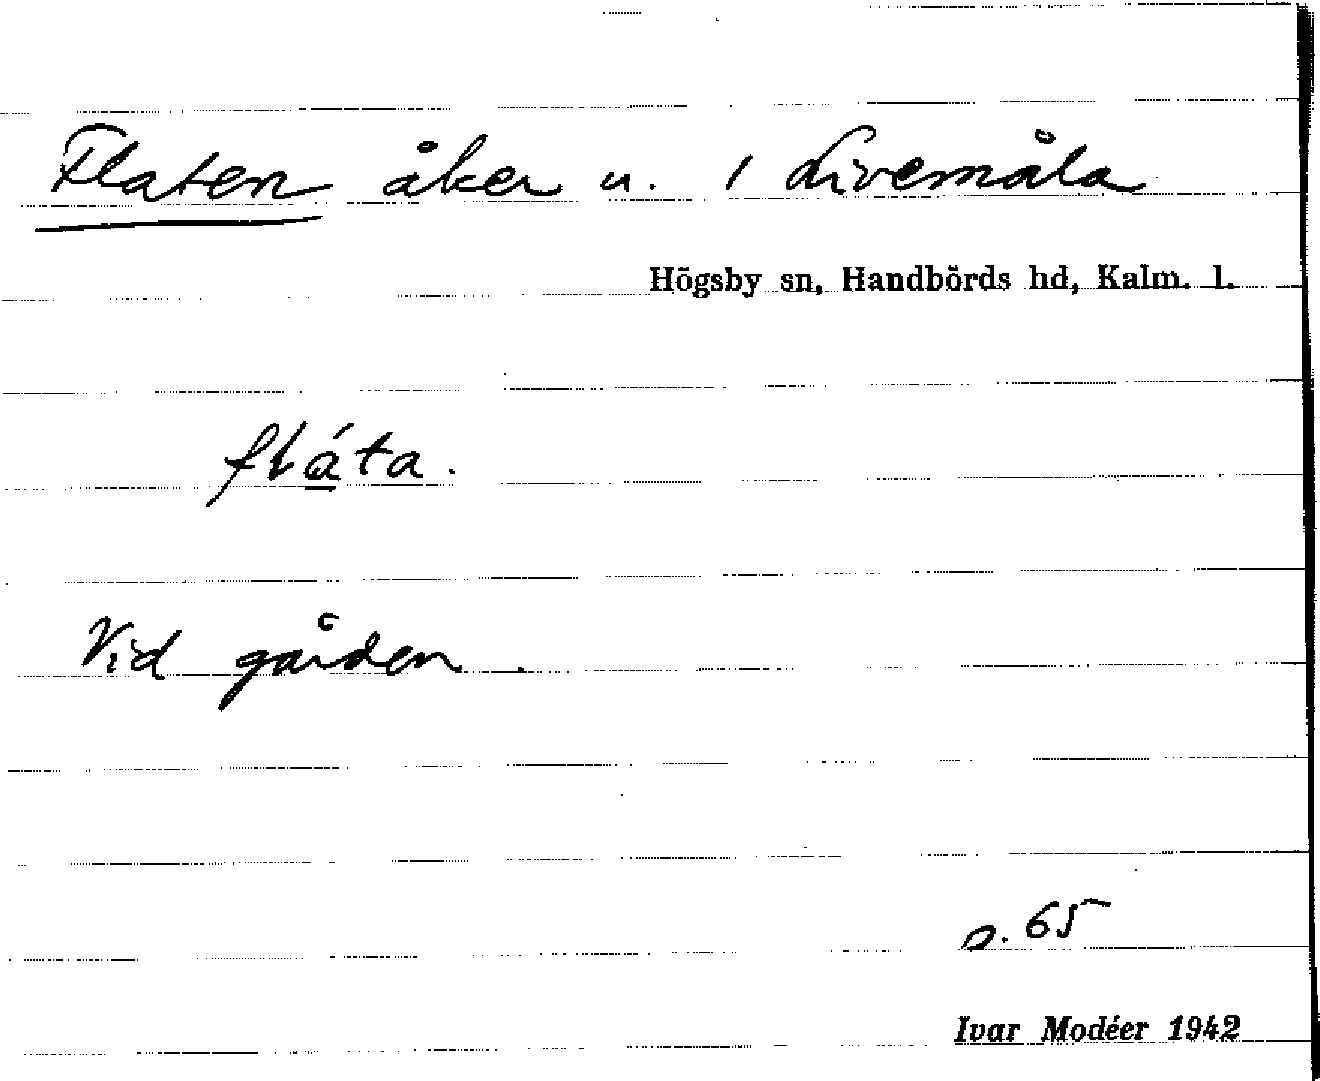 Flaten åker u. 1 Livemåla
Högsby sn, Handbörds hd, Kalm. l.
fláta.
Vid gården.
s. 65
Ivar Modéer 1942